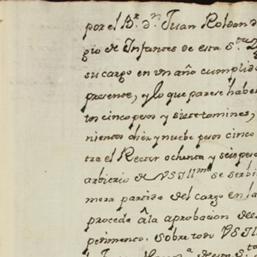 por el B.r d.n Juan Roldan d
gio de Infantes de esta S.ta
su cargo en un año cumplid
presense, y lo que parese habe
tos cinco pesos y siete tomines,
nientos diez y nuebe pesos cinco
tra el Rector ochenta y seis peso
arbitrio de VSIll.ma se serbi
mera partida del cargo en la
proceda â la aprobacion de
perimento. Sobre todo VSIll